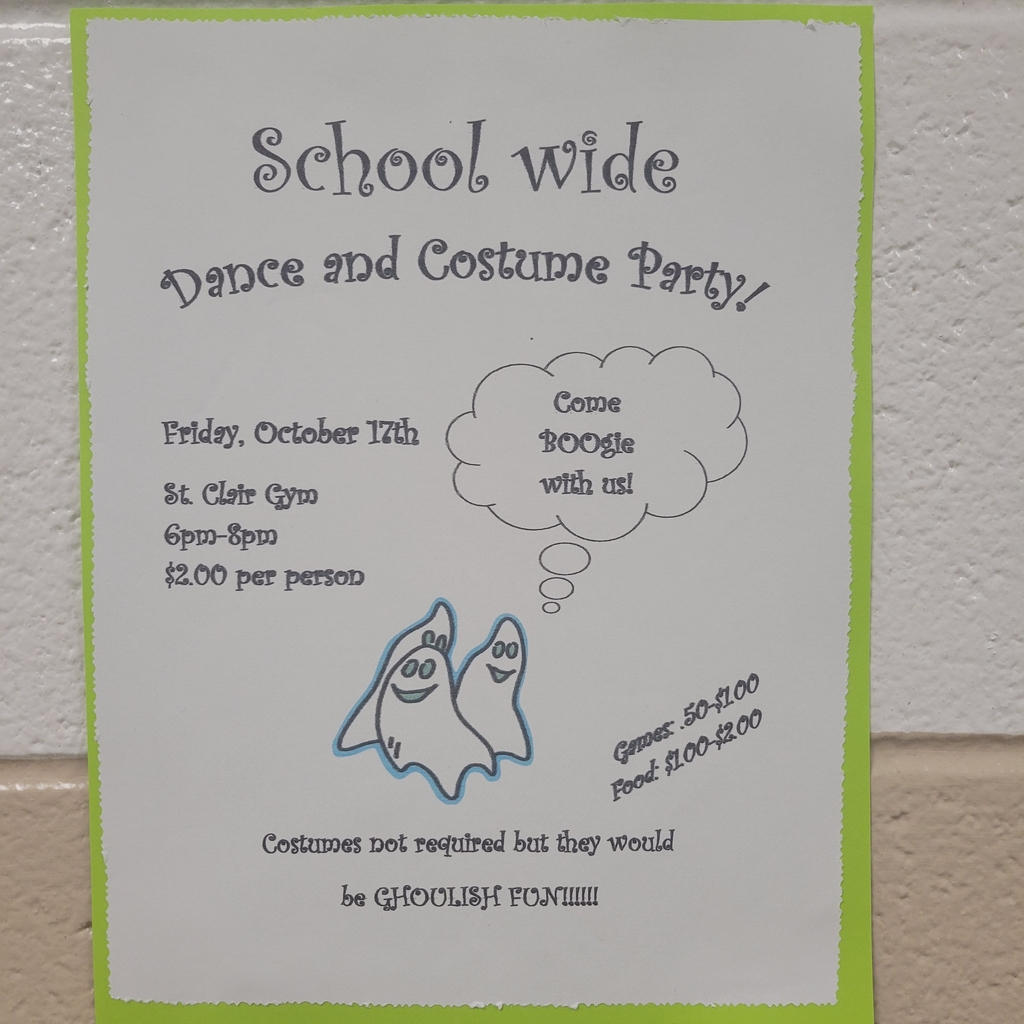 School wide
Dance and Costume Party!
Come
BOOgie
with us!
Friday, October 17th
St. Clair Gym
6pm-8pm
$2.00 per person
Games: .50-$1.00
Food: $1.00-$2.00
Costumes not required but they would
be GHOULISH FUN!!!!!!